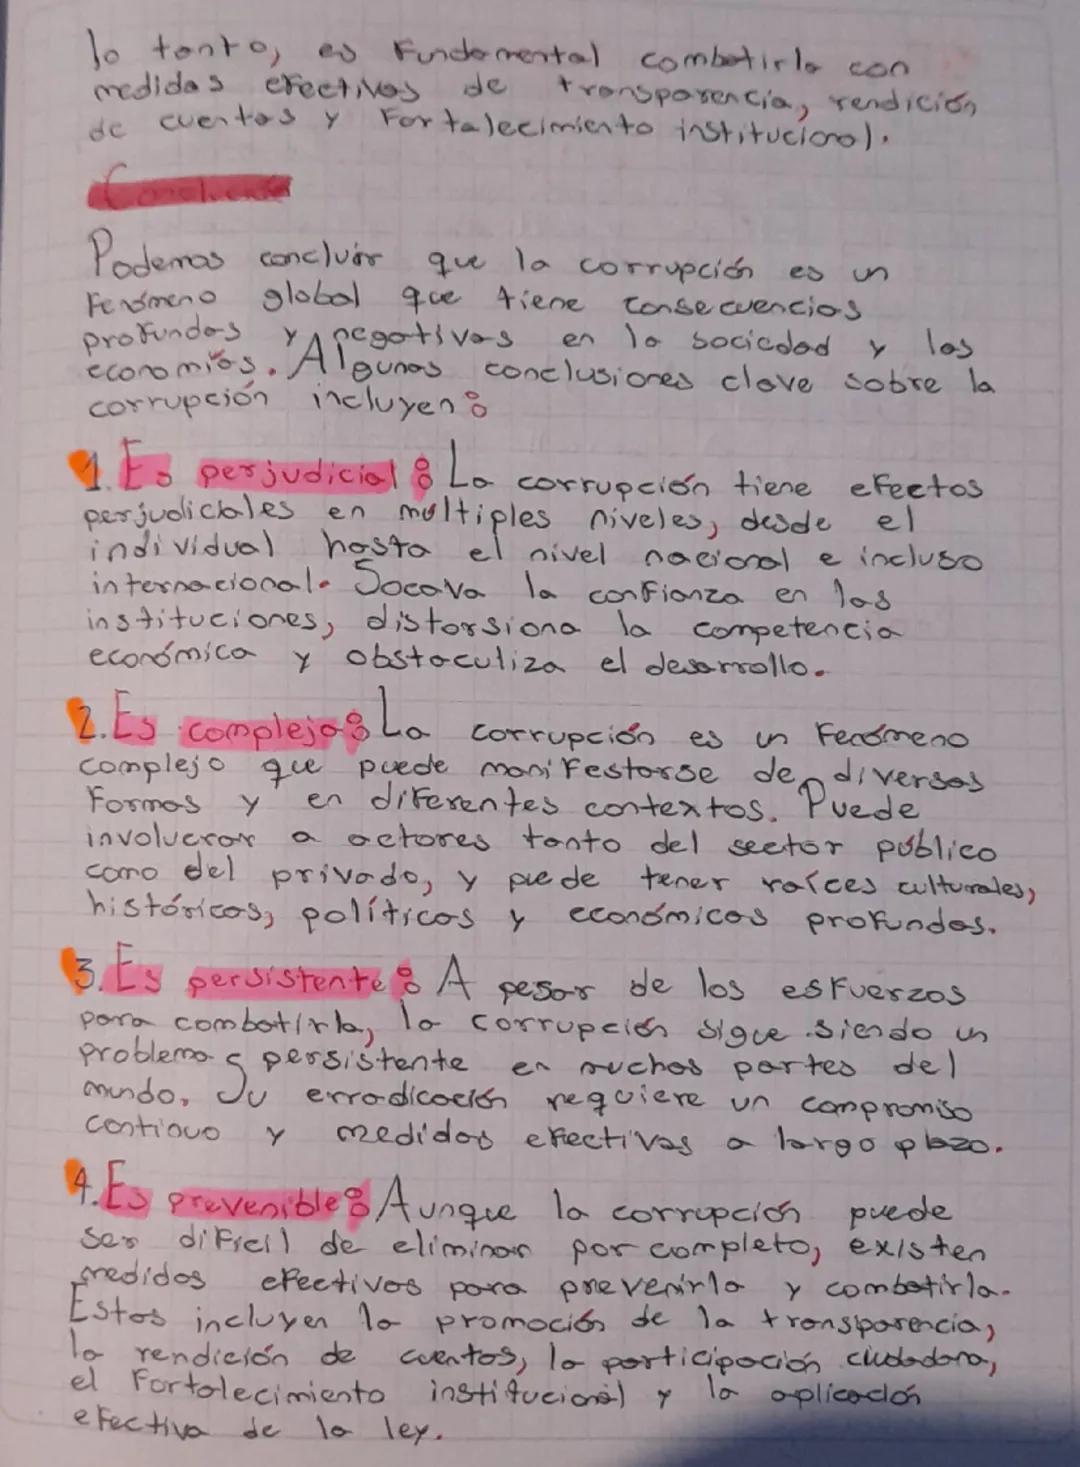 lo tanto, es Fundamental combatirla con
medidas efectivas de transparencia, rendición
de cuentas y Fortalecimiento institucional.
Conclusión
Podemos concluir que la corrupción es un
Fenómeno global que tiene consecuencias
profundas y negativas en la sociedad y las
economías. Algunas conclusiones clave sobre la
corrupción incluyen:
1. Es perjudicial: La corrupción tiene efectos
perjudiciales en múltiples niveles, desde el
individual hasta el nivel nacional e incluso
internacional. Socava la confianza en las
instituciones, distorsiona la competencia
económica y obstaculiza el desarrollo.
2. Es complejo: La corrupción es un Fenómeno
complejo que puede manifestarse de diversas
Formas y en diferentes contextos. Puede
involucrar a actores tanto del sector público
como del privado, y puede tener raíces culturales,
históricas, políticas y económicas profundas.
3. Es persistente: A pesar de los esfuerzos
para combatirla, la corrupción sigue siendo un
problema persistente en muchas partes del
mundo. Su erradicación requiere un compromiso
continuo y medidas efectivas a largo plazo.
4. Es prevenible: Aunque la corrupción puede
ser difícil de eliminar por completo, existen
medidas efectivas para prevenirla y combatirla.
Estas incluyen la promoción de la transparencia,
la rendición de cuentas, la participación ciudadana,
el Fortalecimiento institucional y la aplicación
efectiva de la ley.